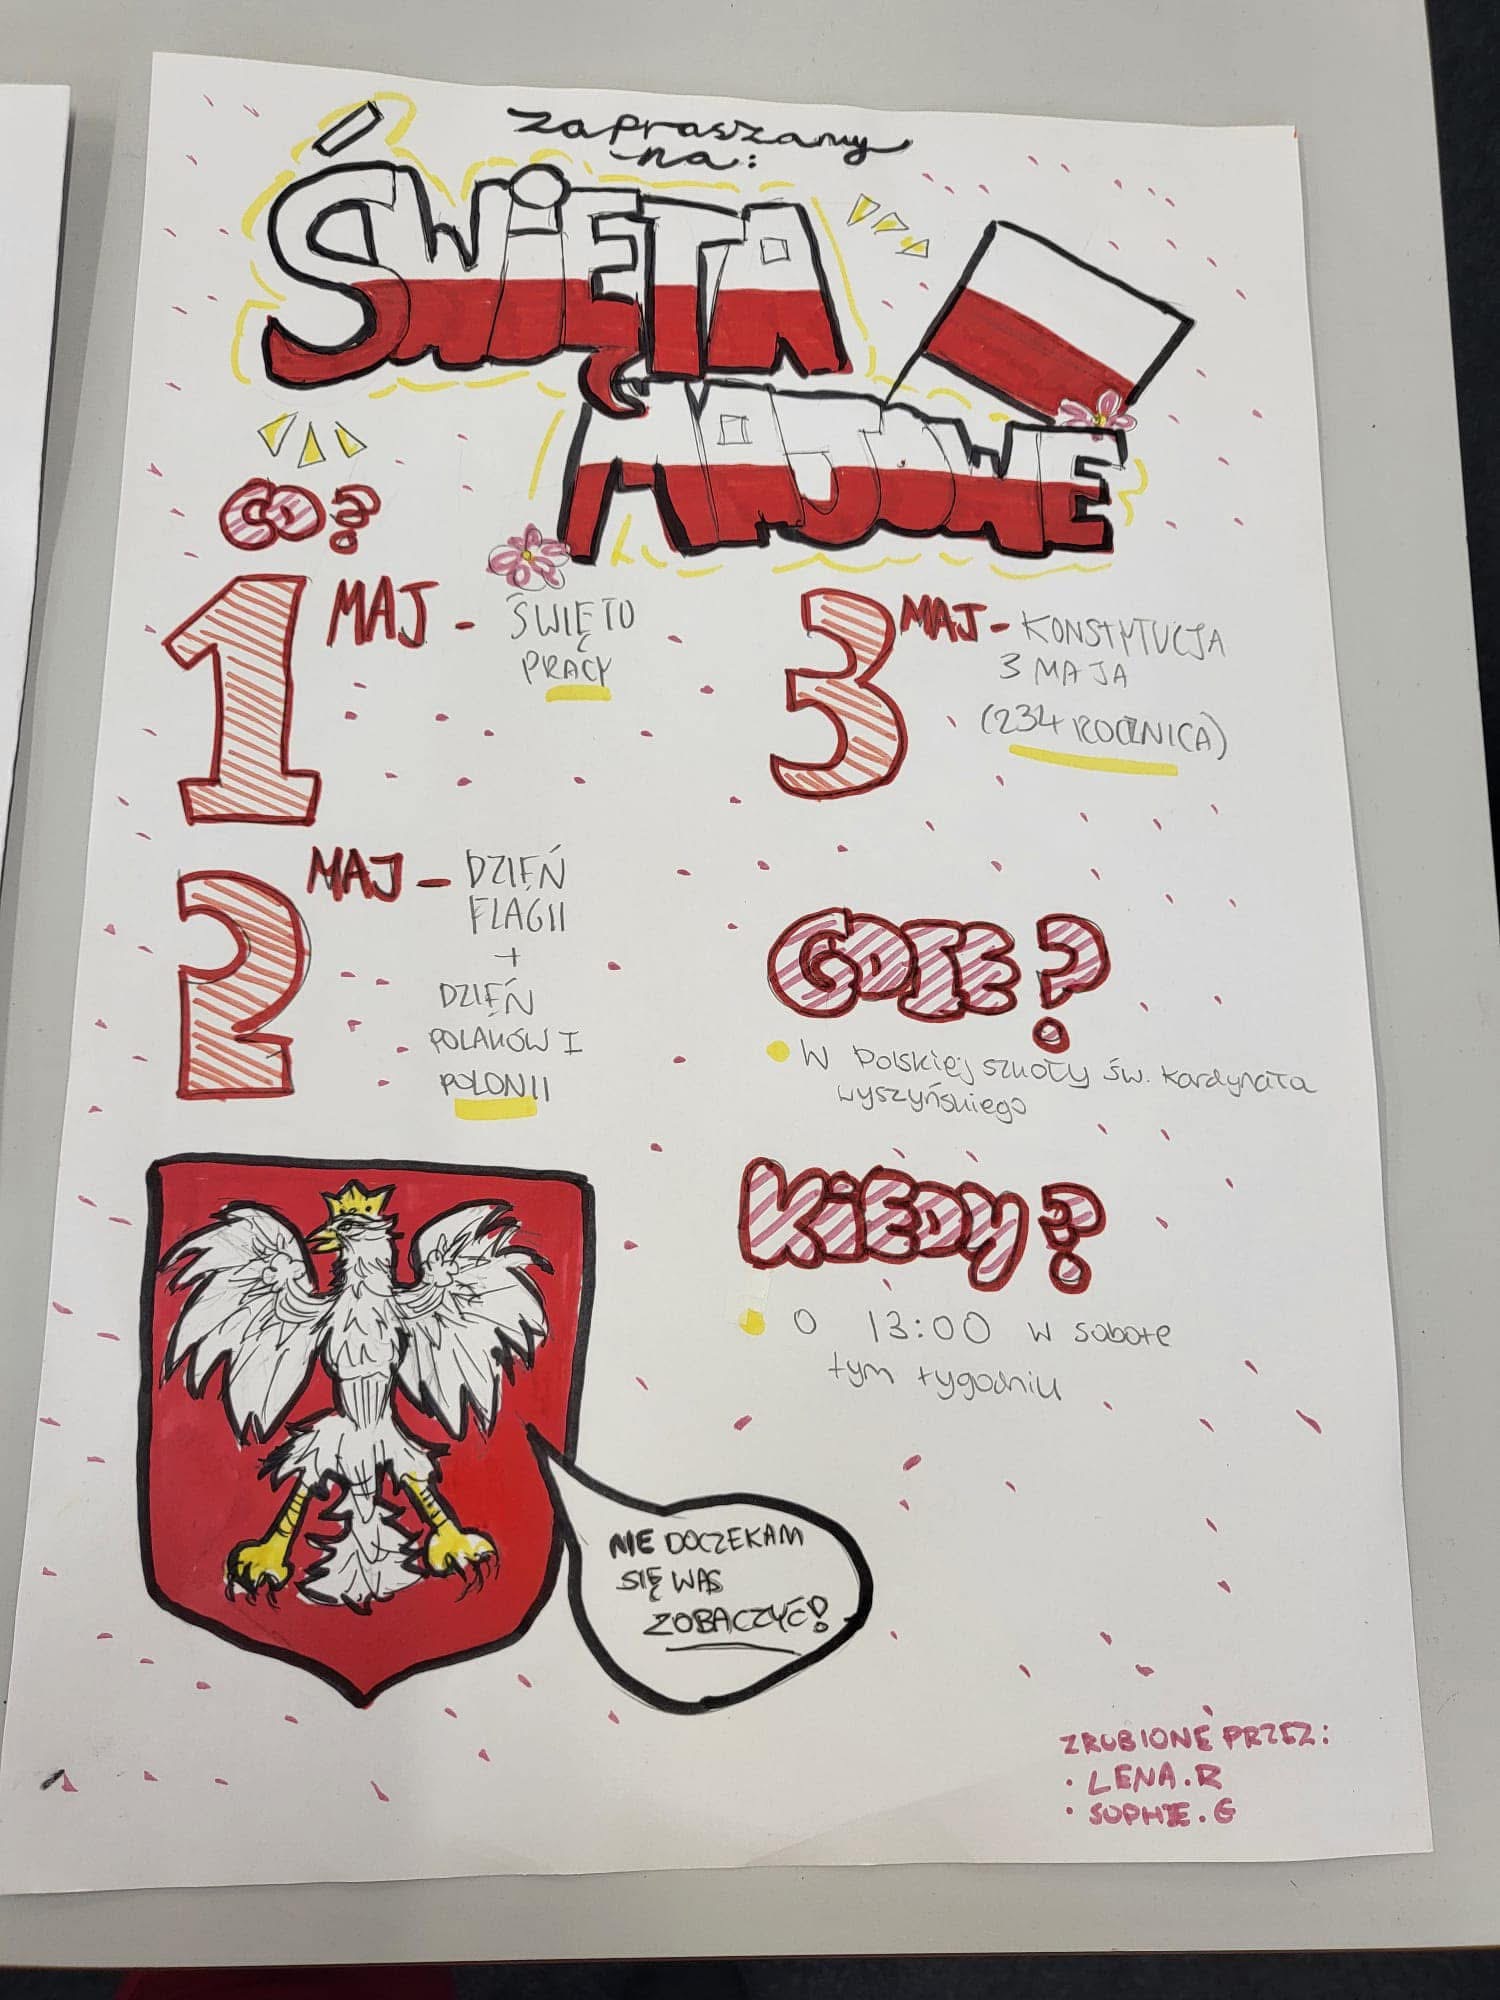 zapraszamy
na:
ŚWIĘTA
MAJOWE
CO?
1 MAJ - ŚWIĘTO
PRACY
2 MAJ - DZIEŃ
FLAGII
+
DZIEŃ
POLAKÓW I
POLONII
3 MAJ - KONSTYTUCJA
3 MAJA
(234 ROCZNICA)
GDIE?
• W Polskiej szkoły św. Kardynała
wyszyńskiego
KiEDY?
• O 13:00 w sobote
tym tygodniu
NIE DOCZEKAM
SIĘ WAS
ZOBACZYĆ!
ZRUBIONE PRZEZ:
• LENA.R
• SOPHIE.G